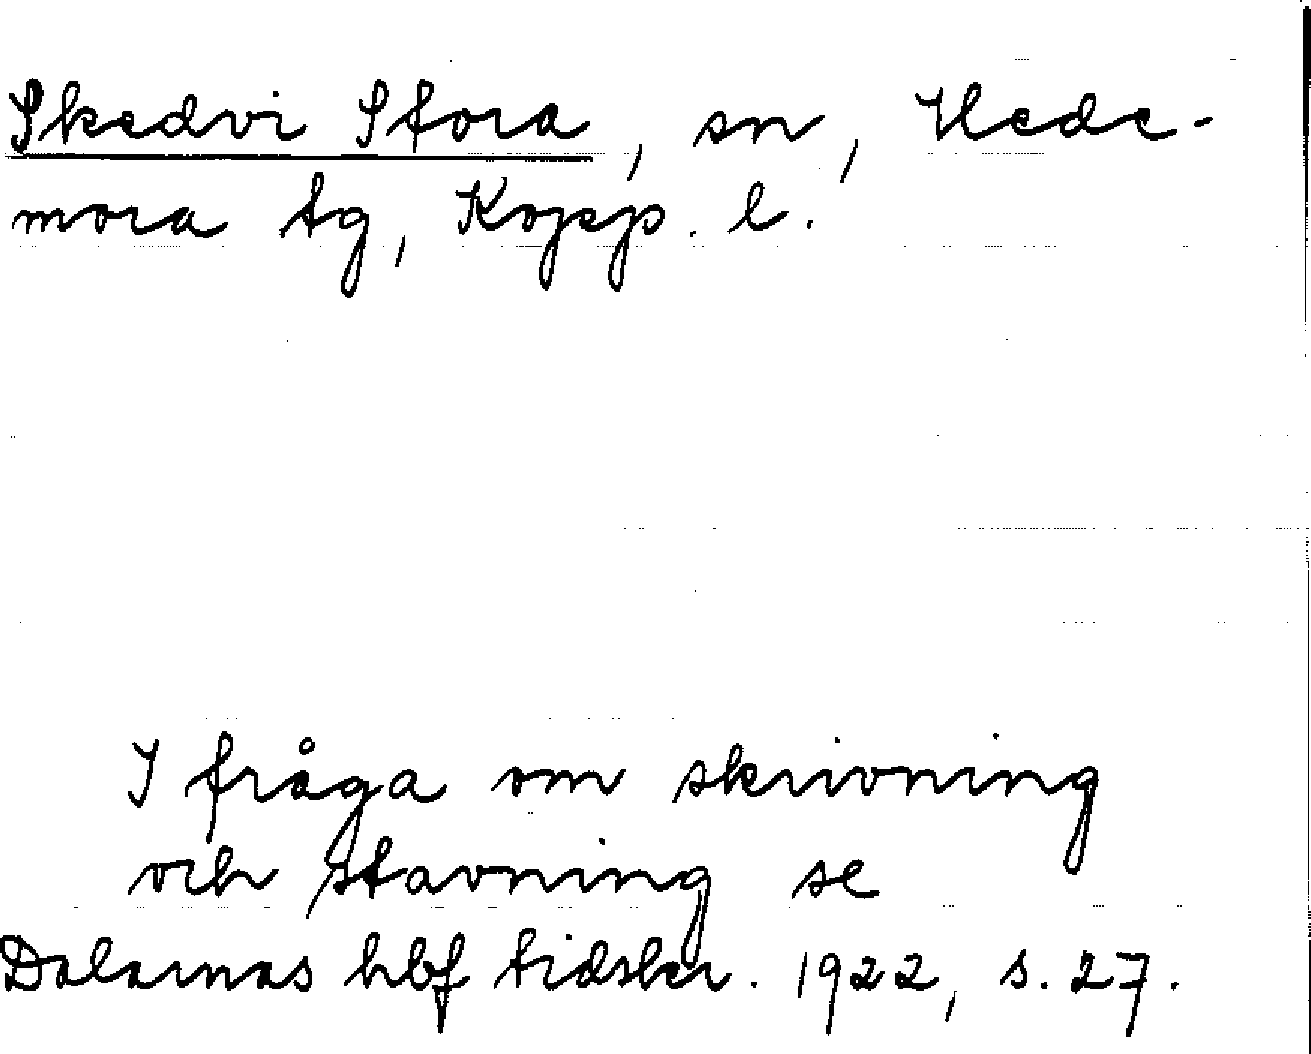 Skedvi Stora, sn, Hede-
mora tg, Kopp. l.
I fråga om skrivning
och stavning se
Dalarnas hbf tidskr. 1922, s. 27.